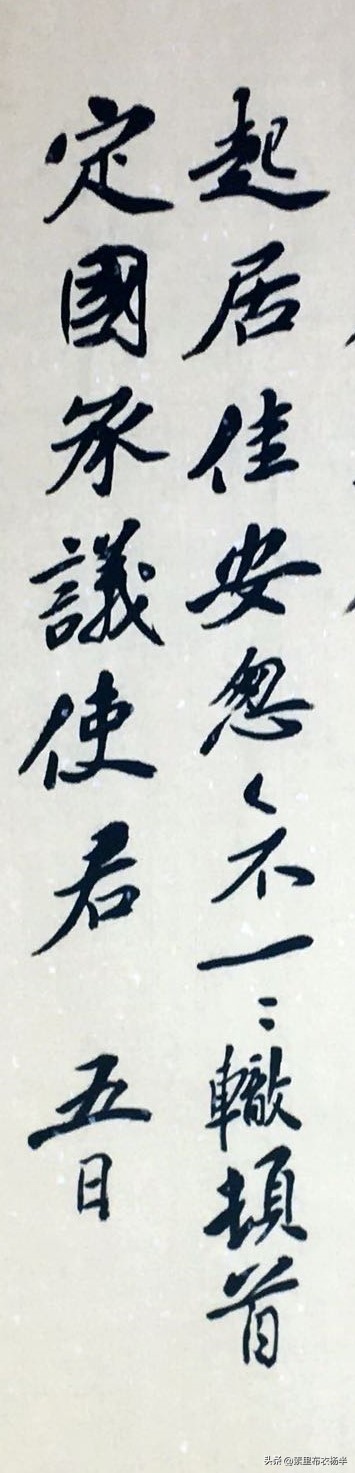 起居佳安怱〻不一〻轍頓首
定國承議使君 五日
头条@繁里布衣杨半